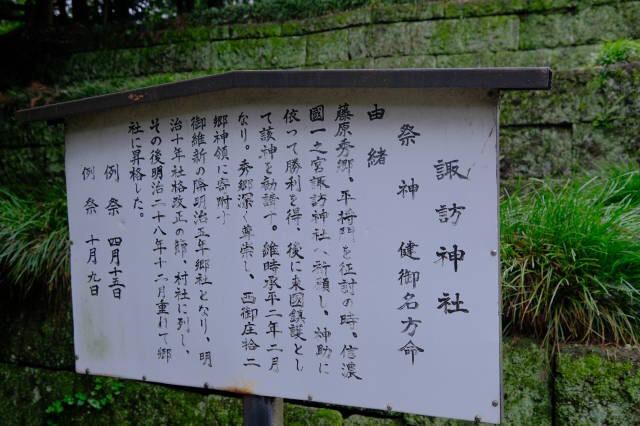 諏訪神社
祭神 健御名方命
由緒
藤原秀郷、平将門を征討の時、信濃
國一之宮諏訪神社へ祈願し、神助に
依つて勝利を得、後に東國鎮護とし
て該神を勧請す。維時承平二年二月
なり。秀郷深く尊崇し、西御庄拾二
郷神領に寄附す
御維新の際明治五年郷社となり、明
治十年社格改正の節、村社に列し、
その後明治二十八年十二月重ねて郷
社に昇格した。
例祭 四月十五日
例祭 十月九日